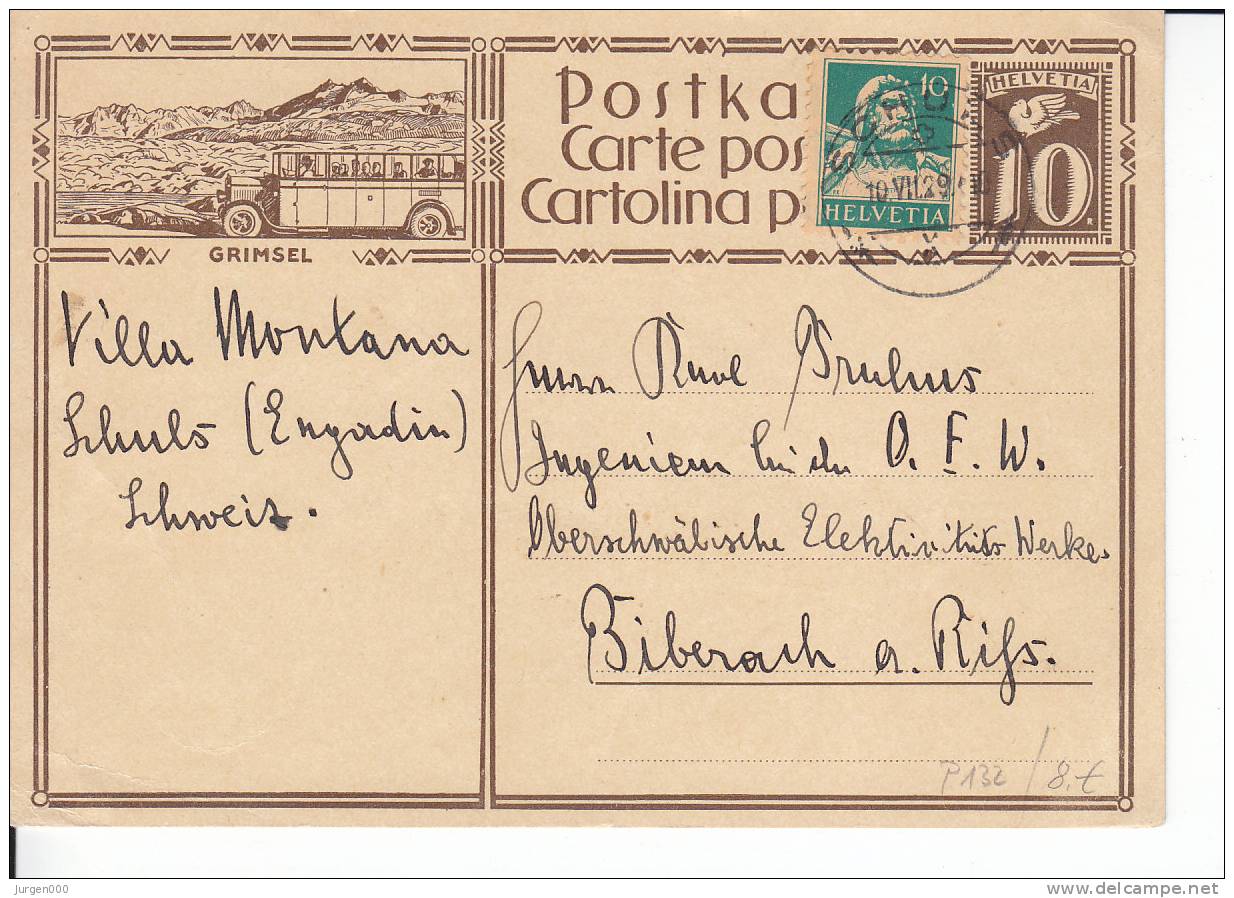 GRIMSEL
Postka
Carte pos
Cartolina p
10
HELVETIA
HELVETIA
10
SCHULS
10.VII.29
Villa Montana
Schuls (Engadin)
Schweiz.
Herrn Karl Bruhns
Ingenieur bei den O. E. W.
Oberschwäbische Elektrizitäts Werke.
Biberach a. Riss.
P132 / 8,€
Jurgen000
www.delcampe.net